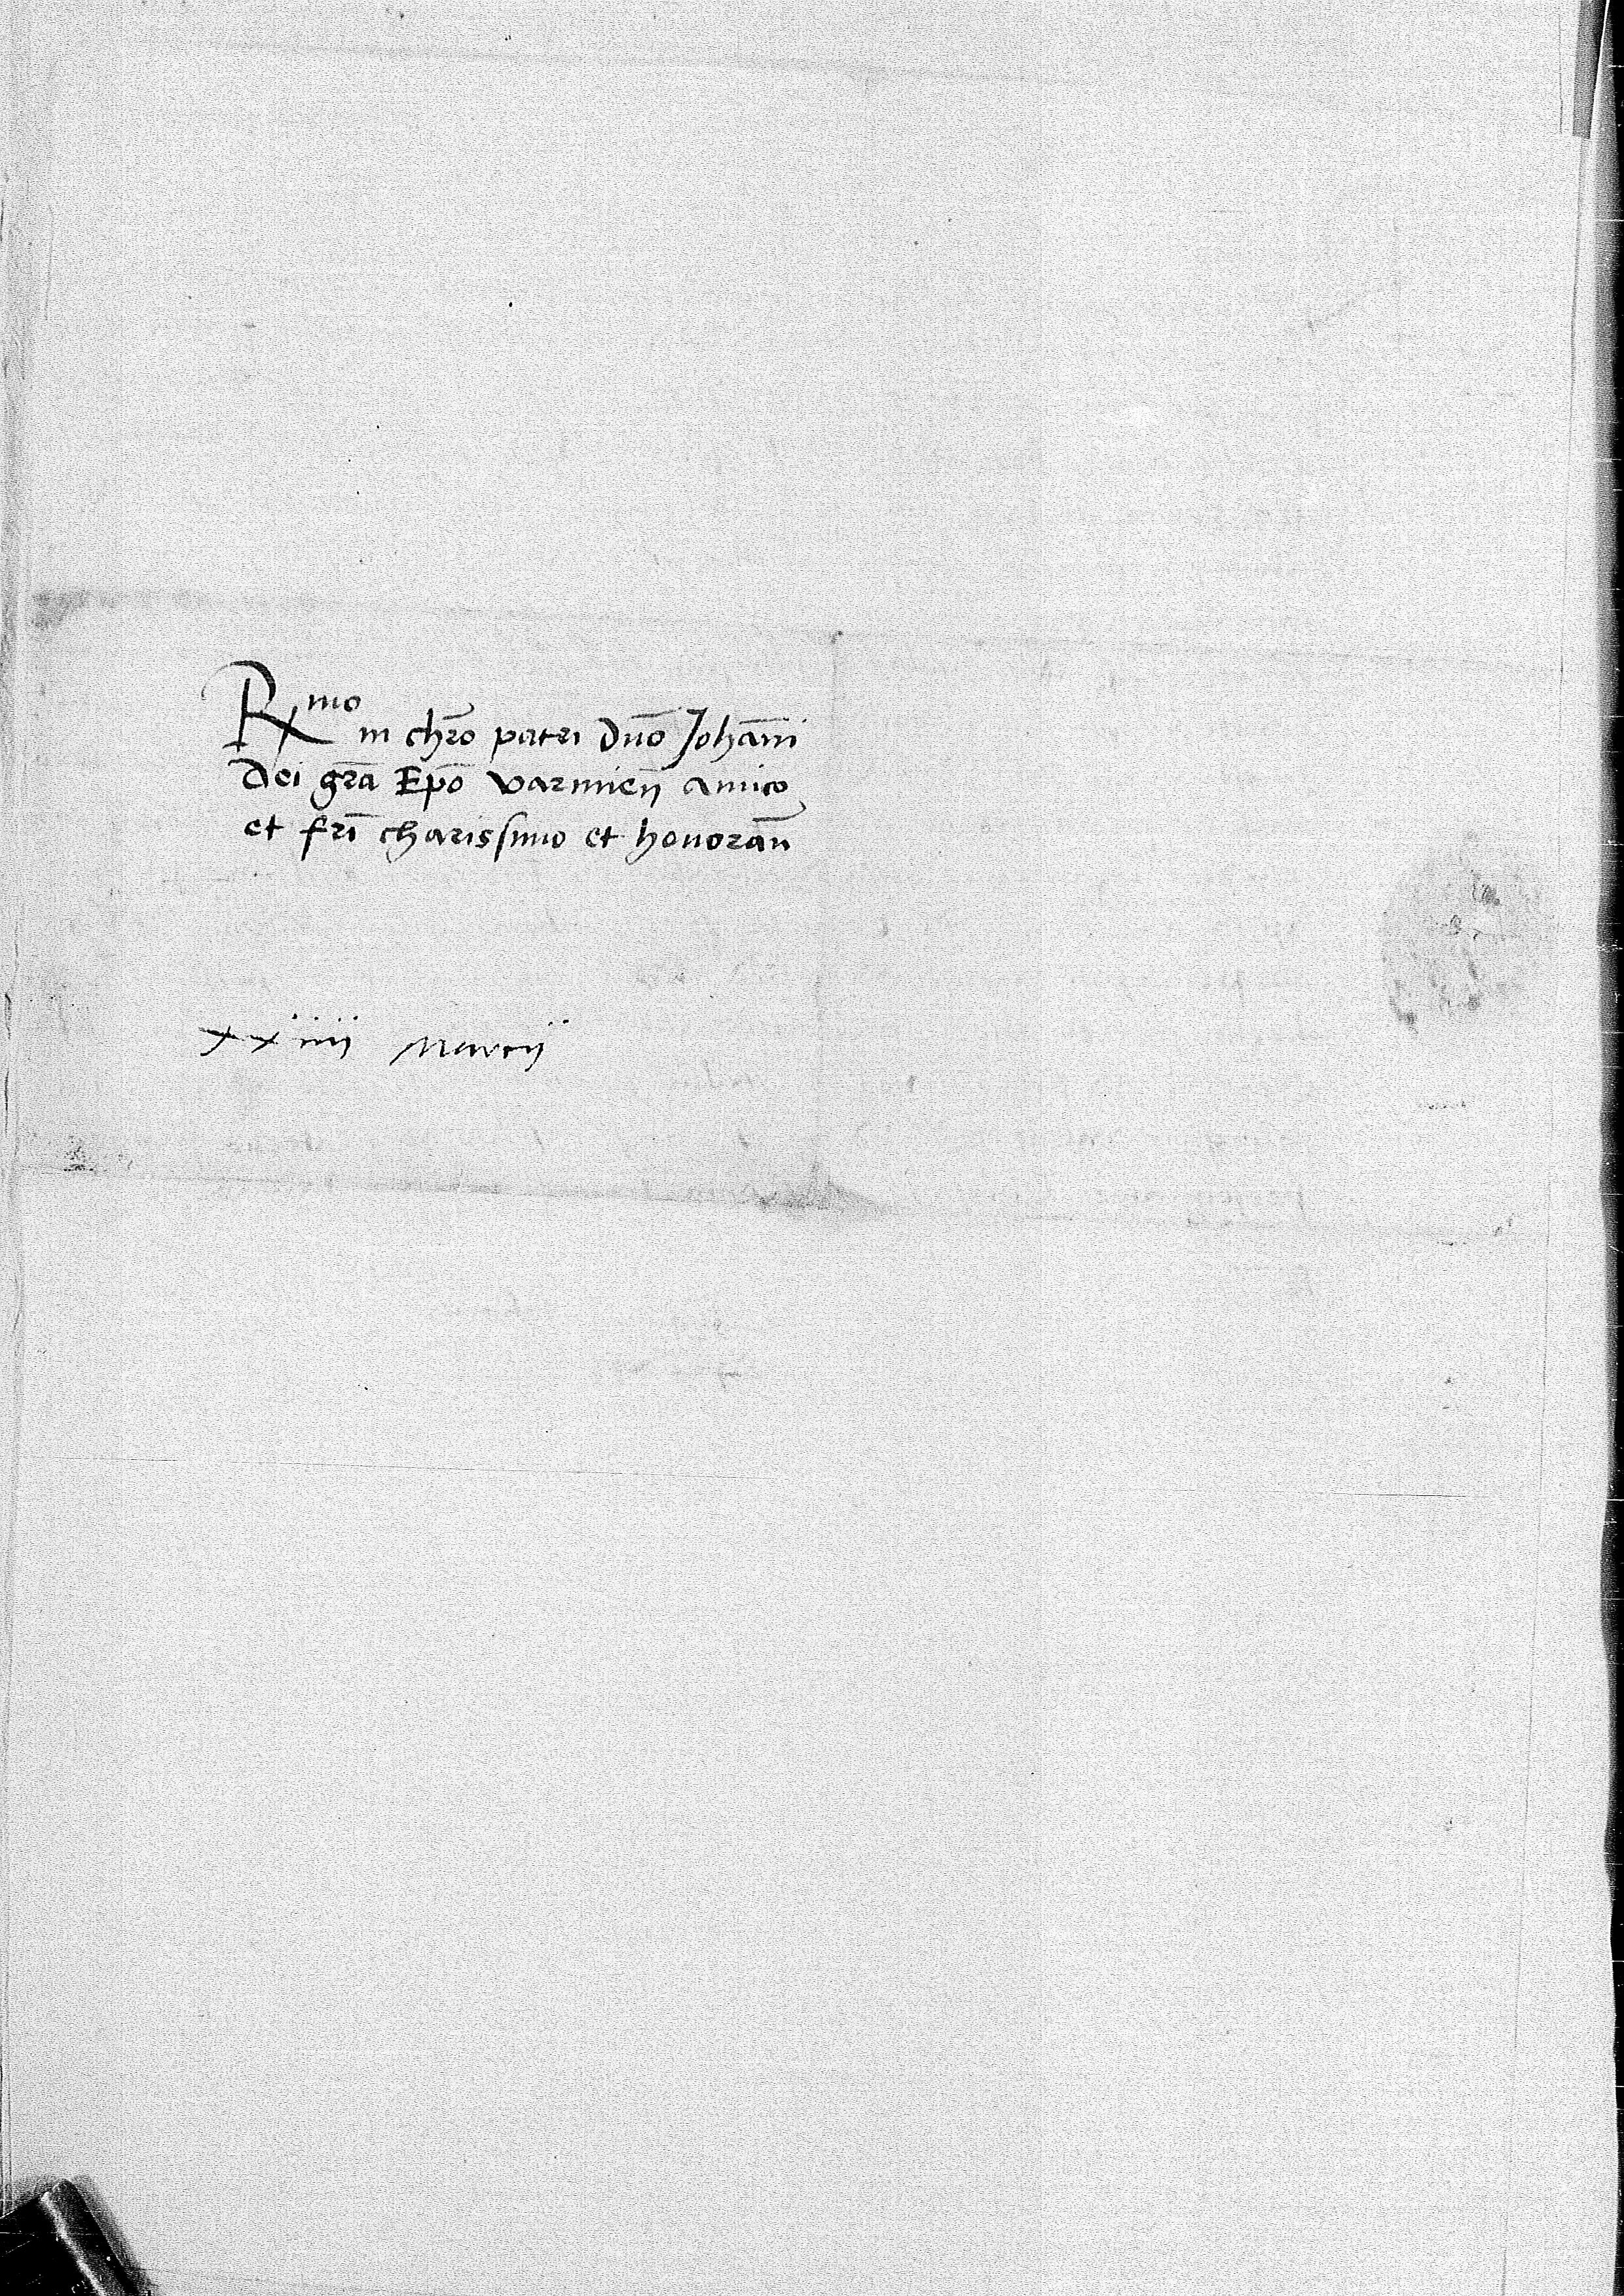 Rmo in chro̅ patri Dno̅ Joha̅ni
Dei gra̅ Epo̅ varmien̅ amico
et fri̅ charissimo et honoran̅
xxiiii Martij